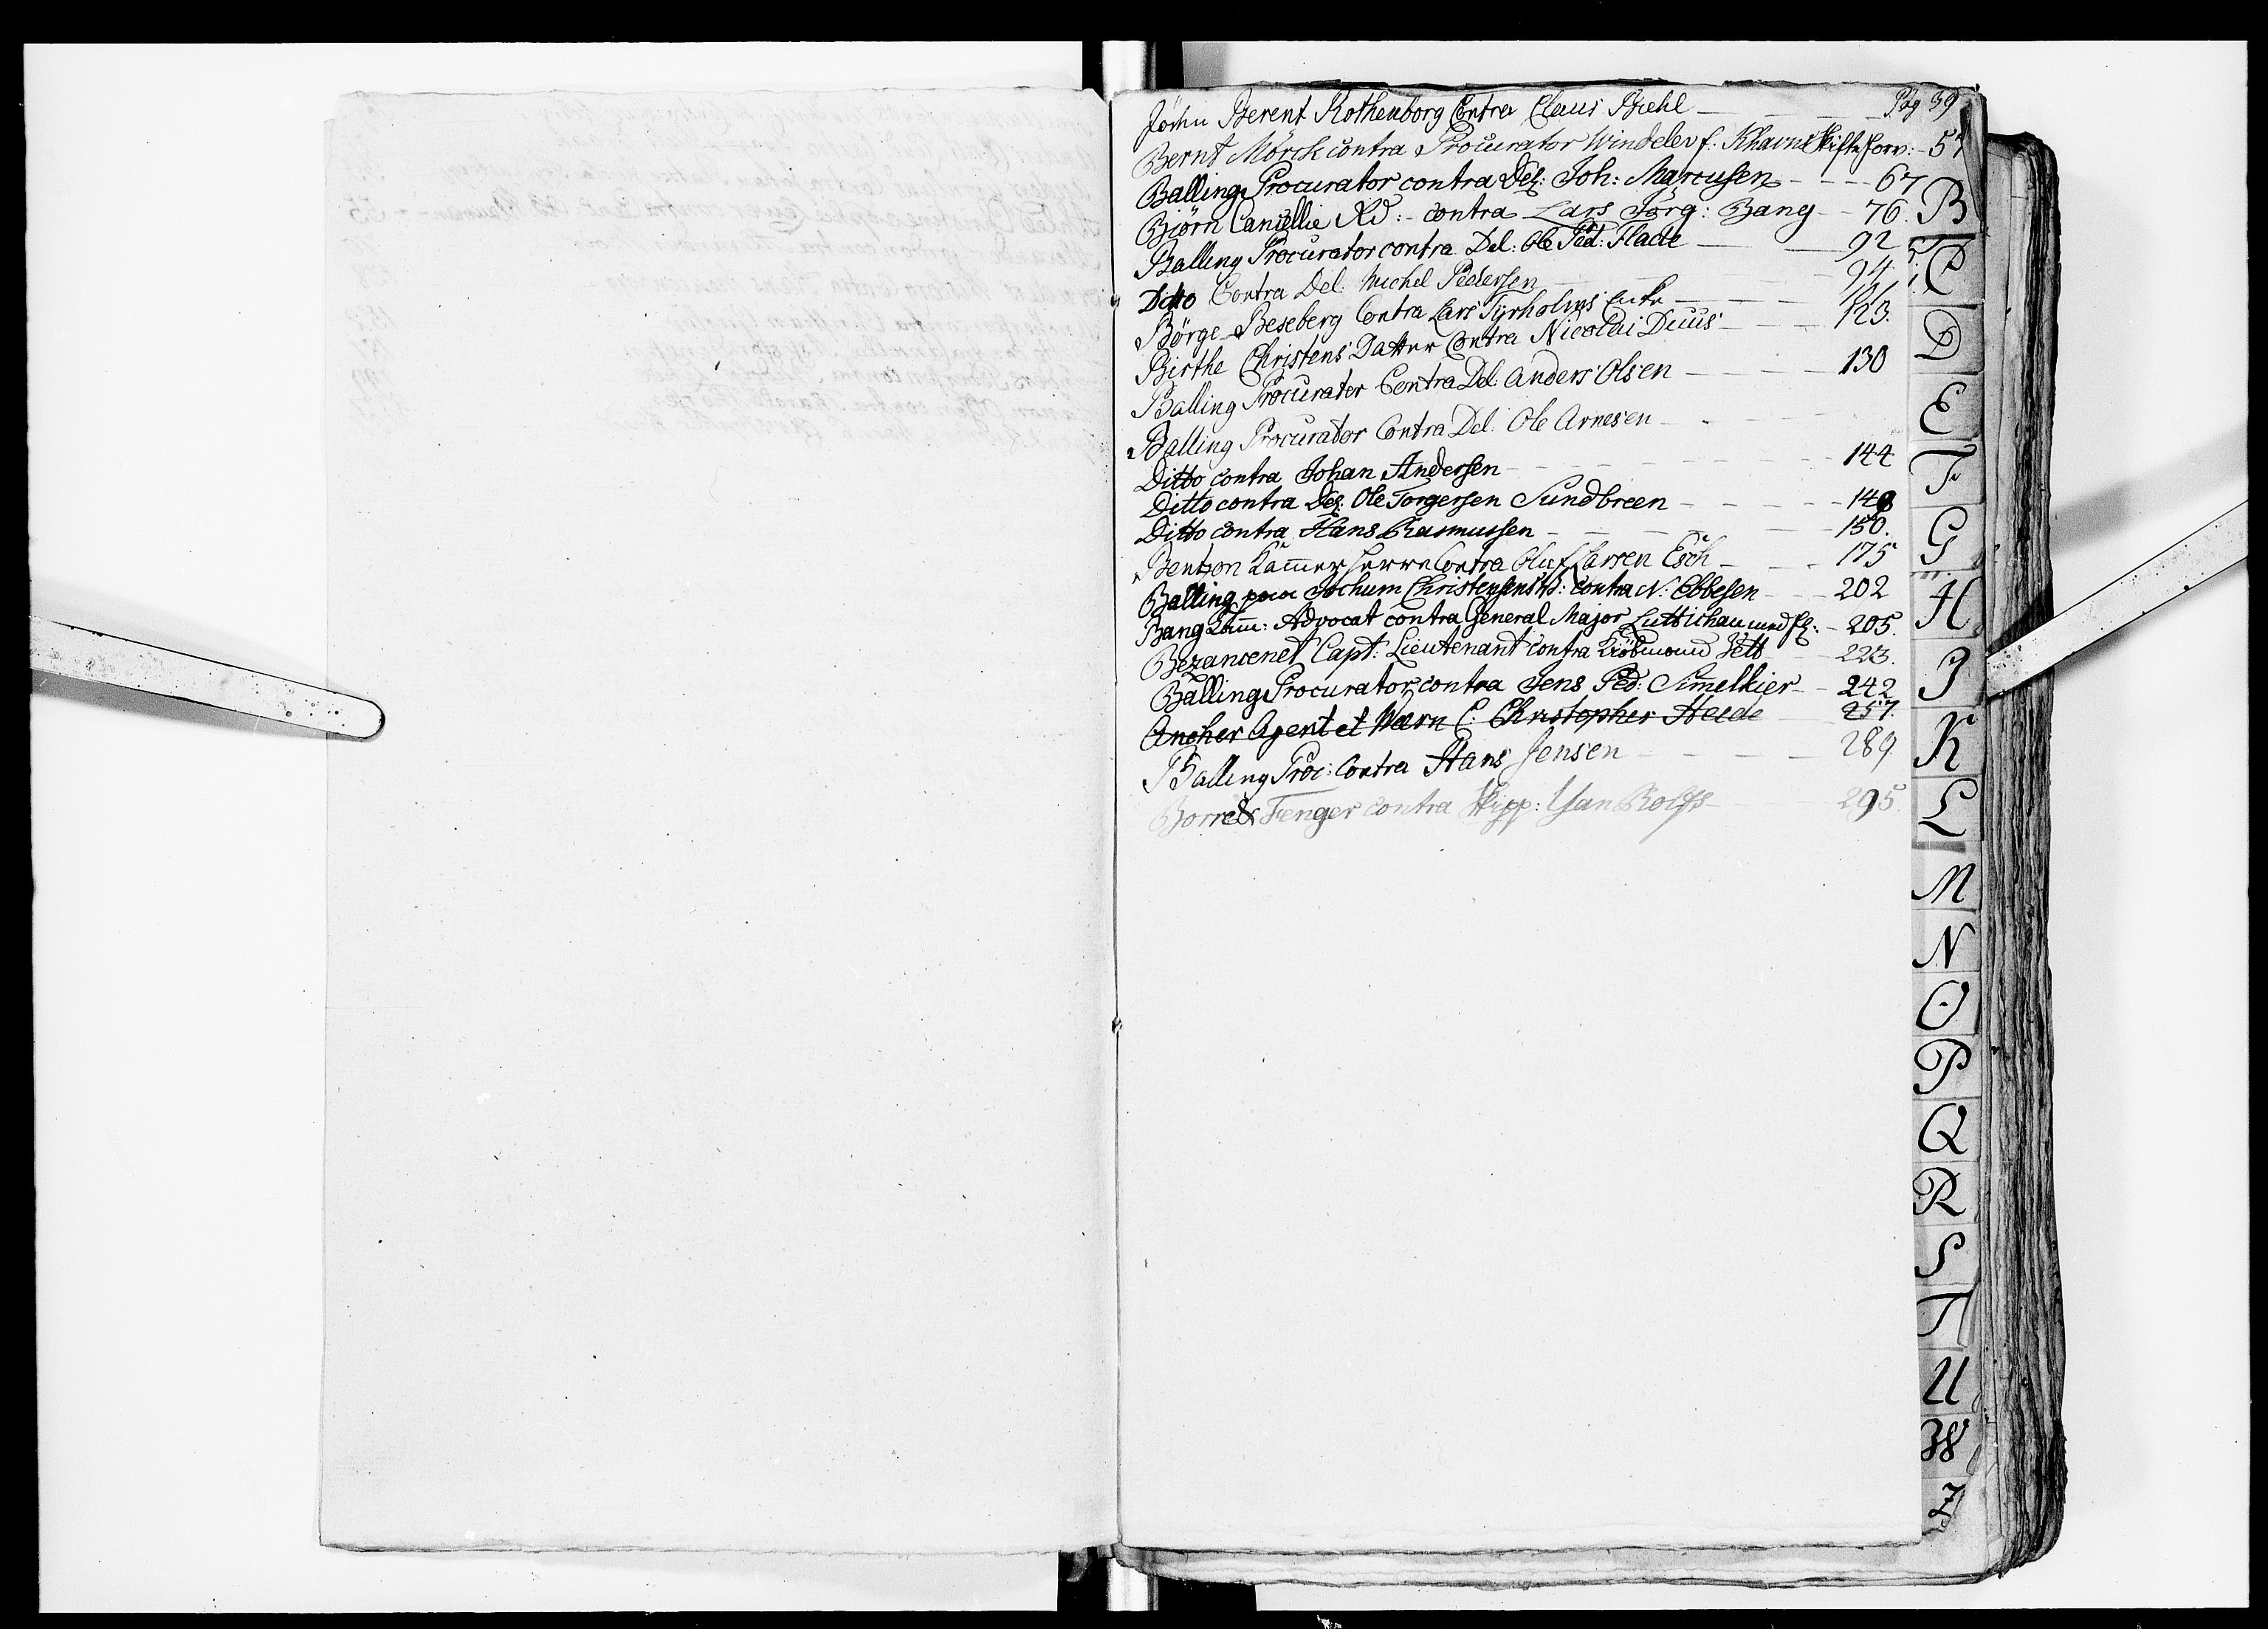 Jochn Berent Rothenborg Contra Claus Biehl — Pag 39
Bernt Mörck contra Procurator Windelev f: Khavns Skifte forv: - 57
Balling Procurator contra Del: Joh: Marcusen - - - 67
Biørn Cancellie Rd: - contra Lars Jörg: Bang - - 76.
Balling Procurator contra Del: Ole Ped: Flade — 92
Ditto Contra Del: Michel Pedersen - 94.
Börge Beseberg Contra Lars Tyrholms Enke — 121.
Birthe Christens Datter Contra Nicolai Duus - 123.
Balling Procurator Contra Del: Anders Olsen - - - 130
Balling Procurator Contra Del: Ole Arnesen - -
Ditto contra Johan Andersen - - - 144
Ditto contra Del: Ole Torgersen Sundbreen - - - 148
Ditto contra Hans Rasmussen - - - 150.
Bentzon Kammer Herre Contra Oluf Larsen Esch - - 175
Balling Jochum Christensens contra N: Ebbesen - - 202
Bang Kam: Advocat contra General Major Luttichau med fl: - 205.
Bezancenet Capt: Lieutenant contra Kiöbmand Zett 223.
Balling Procurator contra Jens Ped: Simelkier - - 242
Ancher Agent et Wærn C: Christopher Heide 257.
Balling Proc: Contra Hans Jensen - - - 289.
Borre & Fenger contra Skipp: Jan Rolfs - 295.
B
C
D
E
F
G
H
I
K
L
M
N
O
P
Q
R
S
T
U